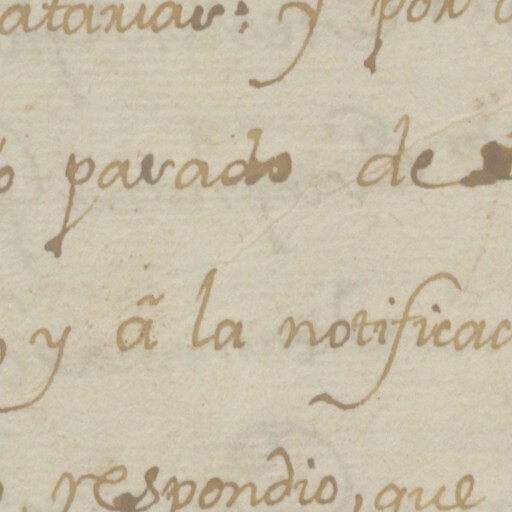 y por
parado de
y ã la notificac
respondio, que